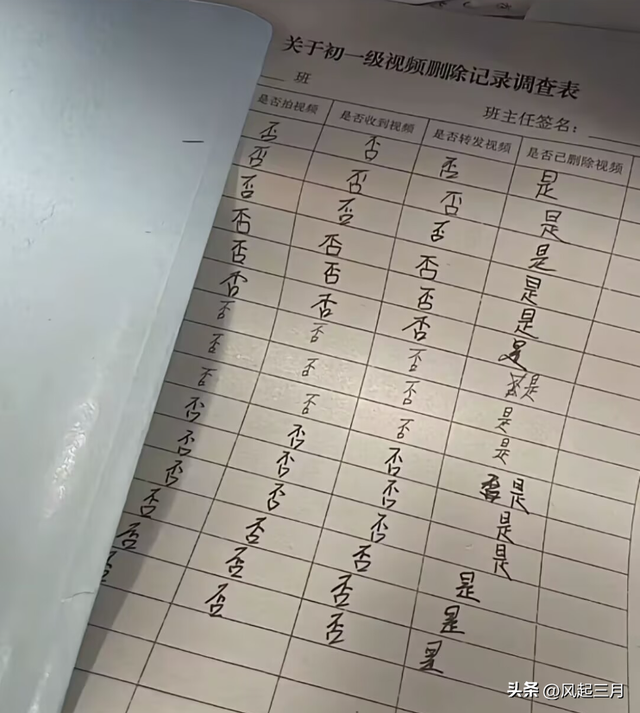 关于初一级视频删除记录调查表
班
班主任签名：
是否拍视频 是否收到视频 是否转发视频 是否已删除视频
否 否 否 是
否 否 否 是
否 否 否 是
否 否 否 是
否 否 否 是
否 否 否 是
否 否 否 是
否 否 否 是
否 否 否 是
否 否 否 否是
否 否 否 是
否 否 否 是
否 否 否 是
否 否 否 是
否 否 否 是
头条 @风起三月